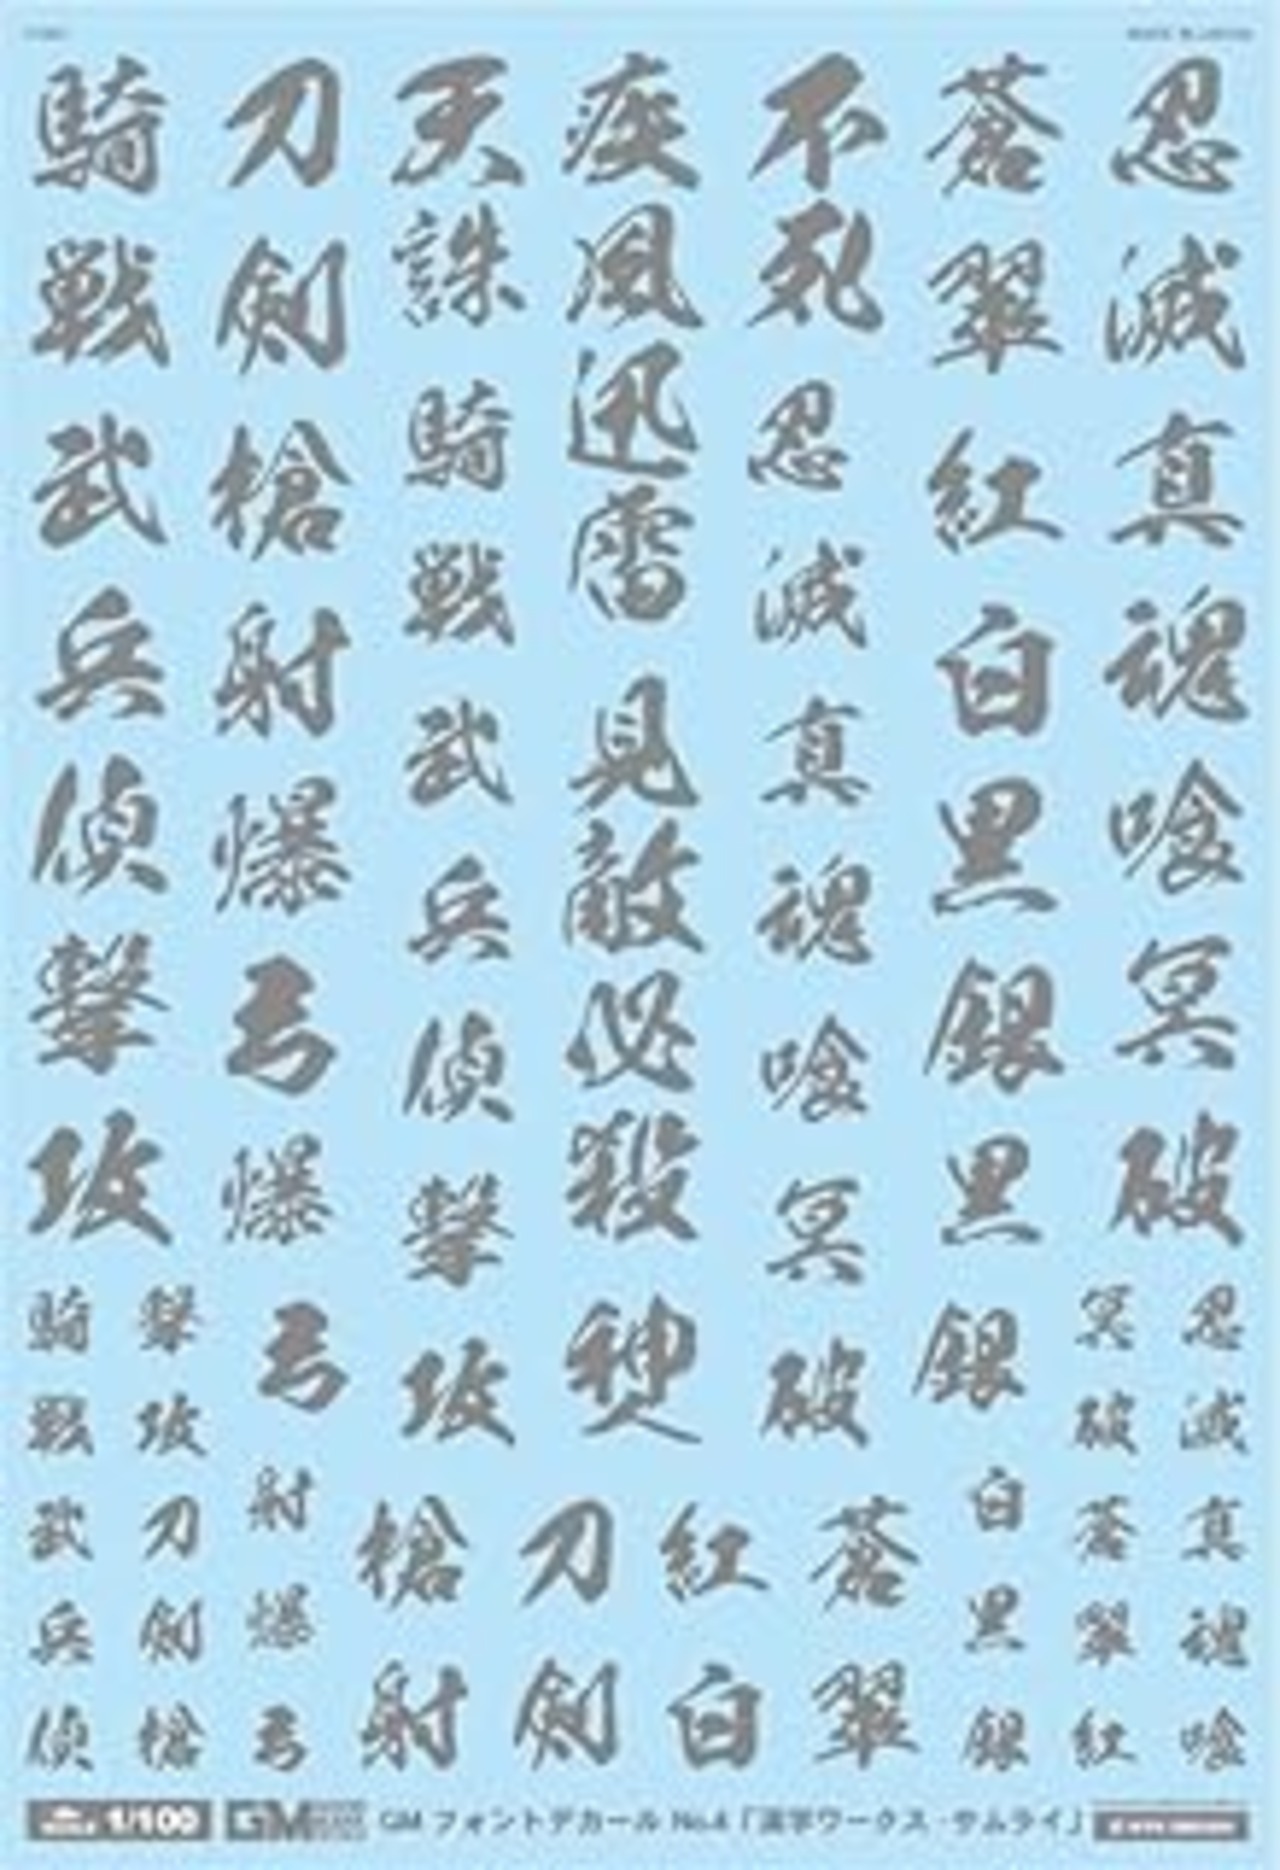 忍滅真魂喰冥破
蒼翠紅白黒銀
不死
疾風迅雷
見敵必殺
天誅
刀剣槍射爆弓
騎戦武兵偵撃攻
忍滅真魂喰冥破
騎戦武兵偵撃攻
黒銀
爆弓
蒼紅刀槍
翠白剣射
忍滅真魂喰
冥破蒼翠紅
白黒銀
射爆弓
撃攻刀剣槍
騎戦武兵偵
1/100
GM
GM フォントデカール No.4「漢字ワークス・サムライ」